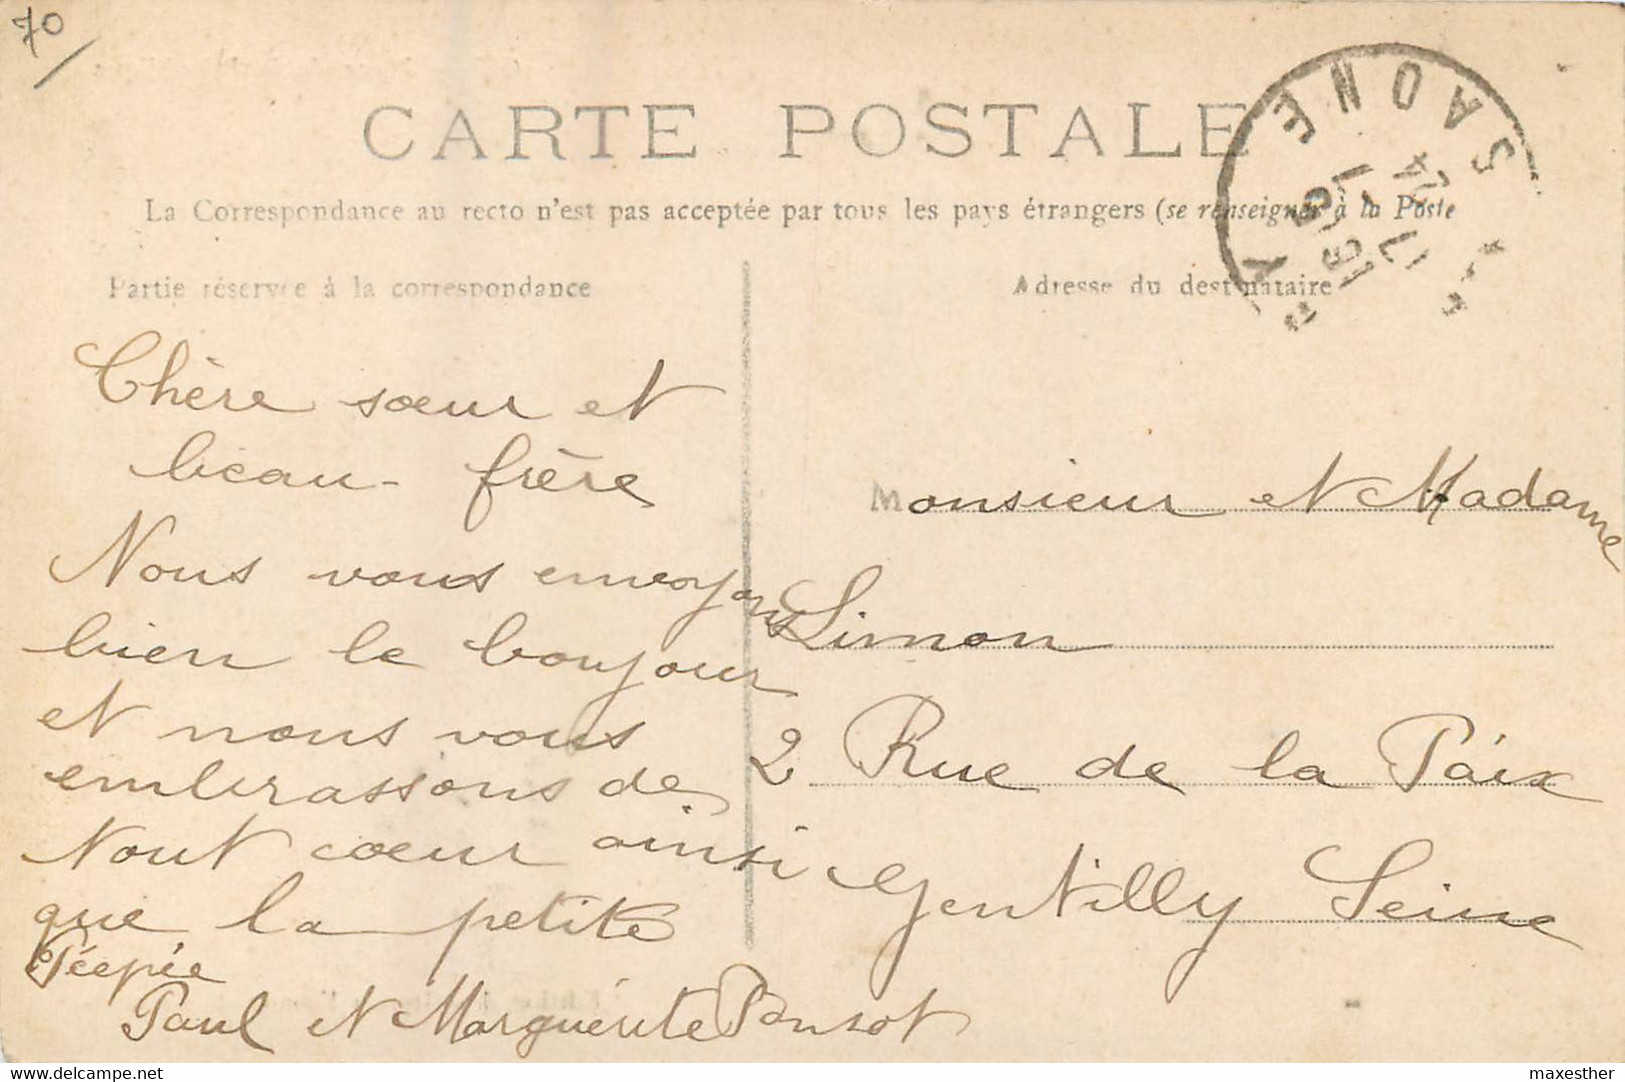 70
CARTE POSTALE
La Correspondance au recto n'est pas acceptée par tous les pays étrangers (se renseigner à la Poste
Partie réservée à la correspondance
Adresse du destinataire
SAONE
Chère sœur et
beau-frère
Nous vous envoyons
bien le bonjour
et nous vous
embrassons de
tout cœur ainsi
que la petite
Paul et Marguerite Ponsot
Monsieur et Madame
Simon
2 Rue de la Paix
Gentilly Seine
delcampe.net
maxesther